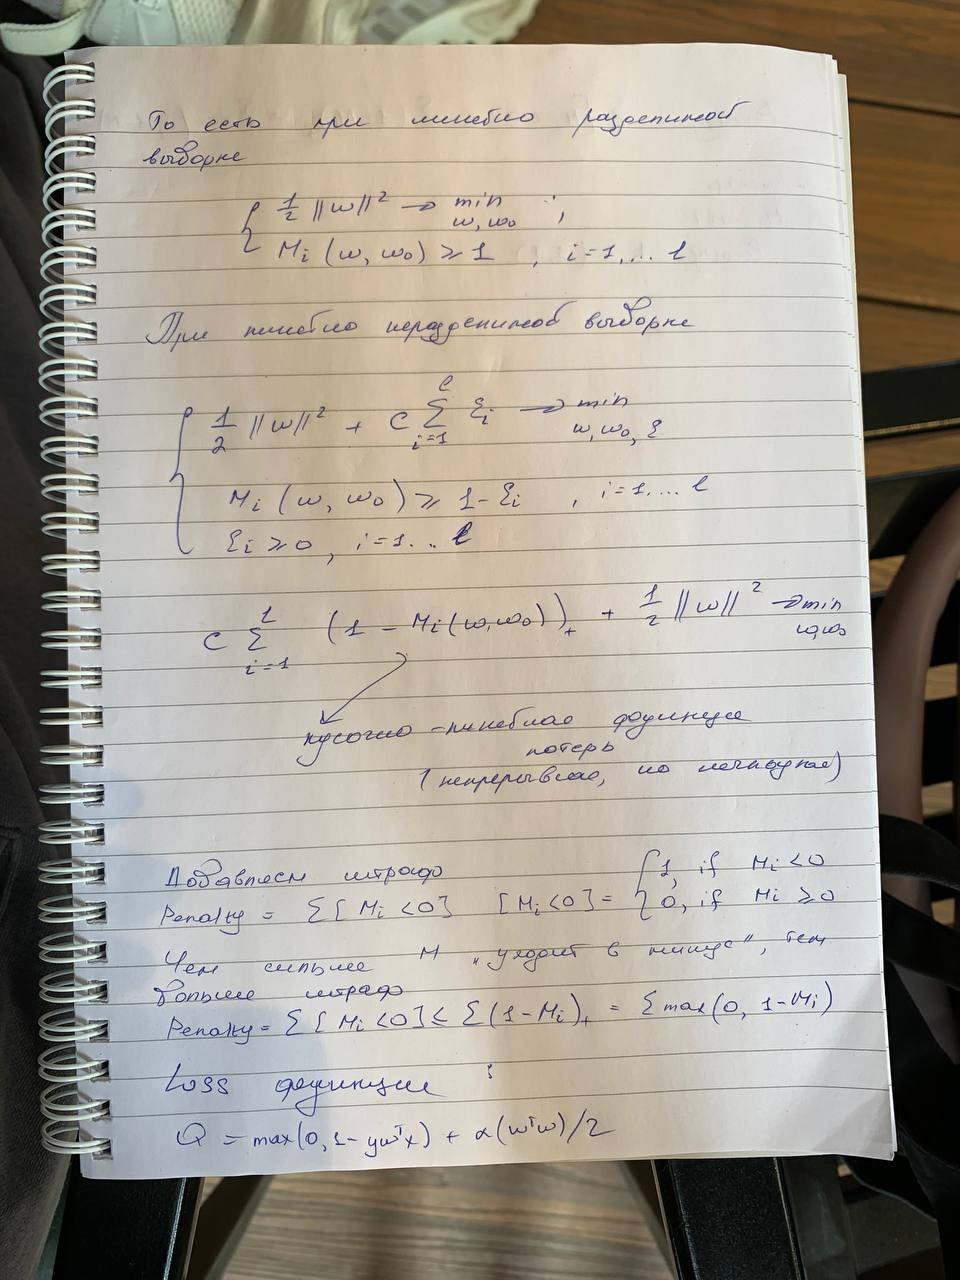 То есть при линейно разделимой
выборке
{ 1/2 ||w||² → min w, w₀ ;
Mᵢ (w, w₀) ⩾ 1 , i=1,... l
При линейно неразделимой выборке
{ 1/2 ||w||² + C Σ_{i=1}^{l} ξᵢ → min w, w₀, ξ
Mᵢ (w, w₀) ⩾ 1-ξᵢ , i=1,... l
ξᵢ ⩾ 0, i=1... l
C Σ_{i=1}^{l} (1 - Mᵢ(w,w₀))₊ + 1/2 ||w||² → min w,w₀
кусочно-линейная функция
потерь
(непрерывная, но негладкая)
Добавляем штраф
Penalty = Σ[Mᵢ<0] [Mᵢ<0] = { 1, if Mᵢ<0
0, if Mᵢ ⩾0
Чем сильнее M „уходит в минус", тем
больше штраф
Penalty = Σ[Mᵢ<0] ≤ Σ(1-Mᵢ)₊ = Σmax(0, 1-Mᵢ)
Loss функции :
Q = max(0, 1-ywᵀx) + α(wᵀw)/2